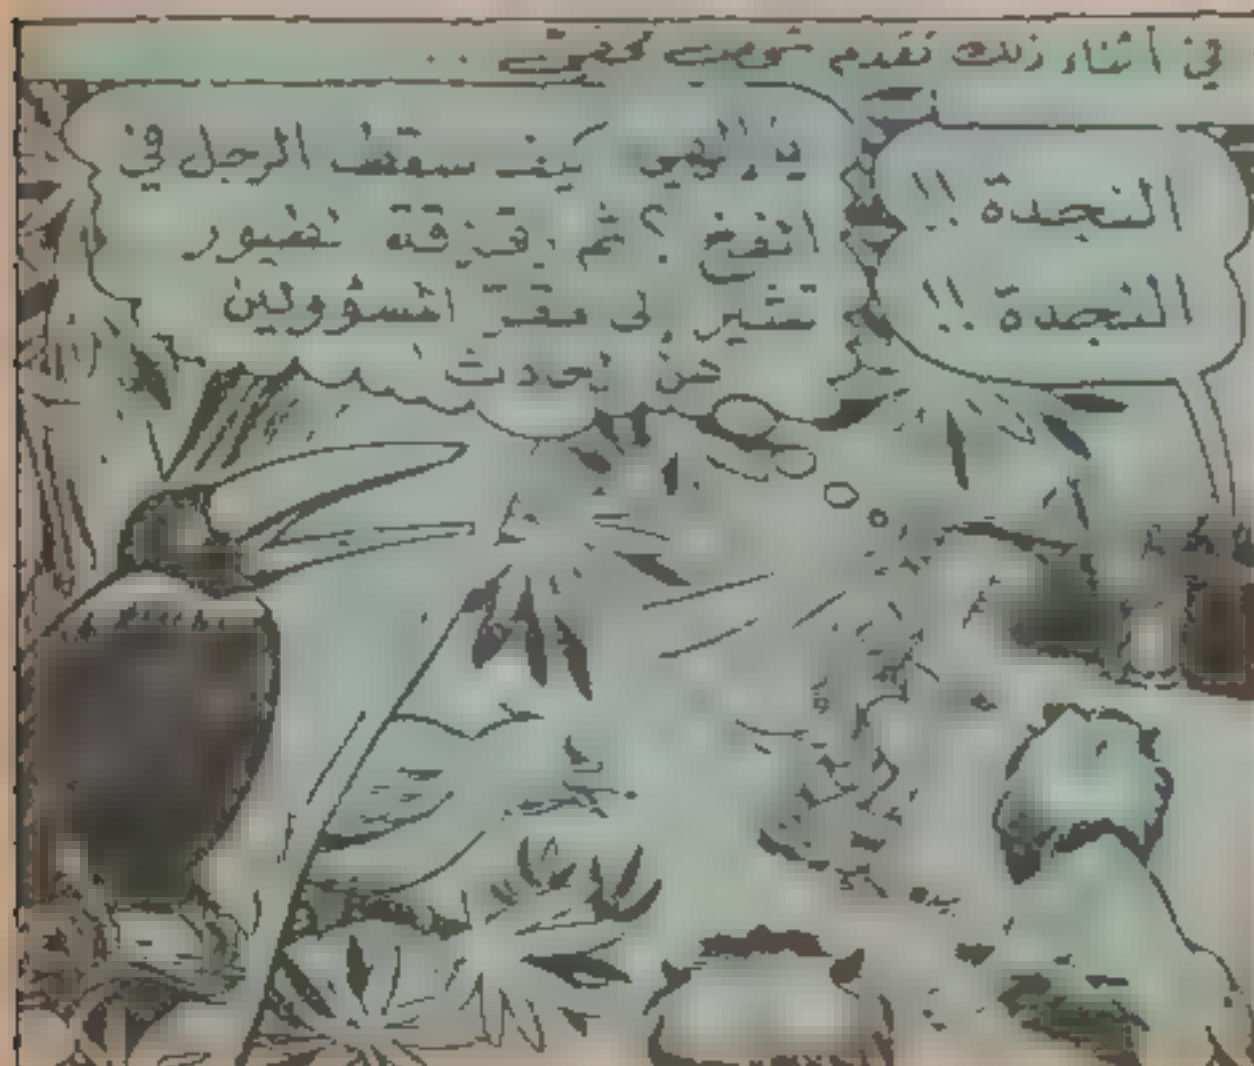 في أثناء ذلك تقدم
النجدة !!
النجدة !!
يا إلهي كيف سقط الرجل في
الفخ ؟ ثم زقزقة الطيور
تشير إلى مقر المسؤولين
عن